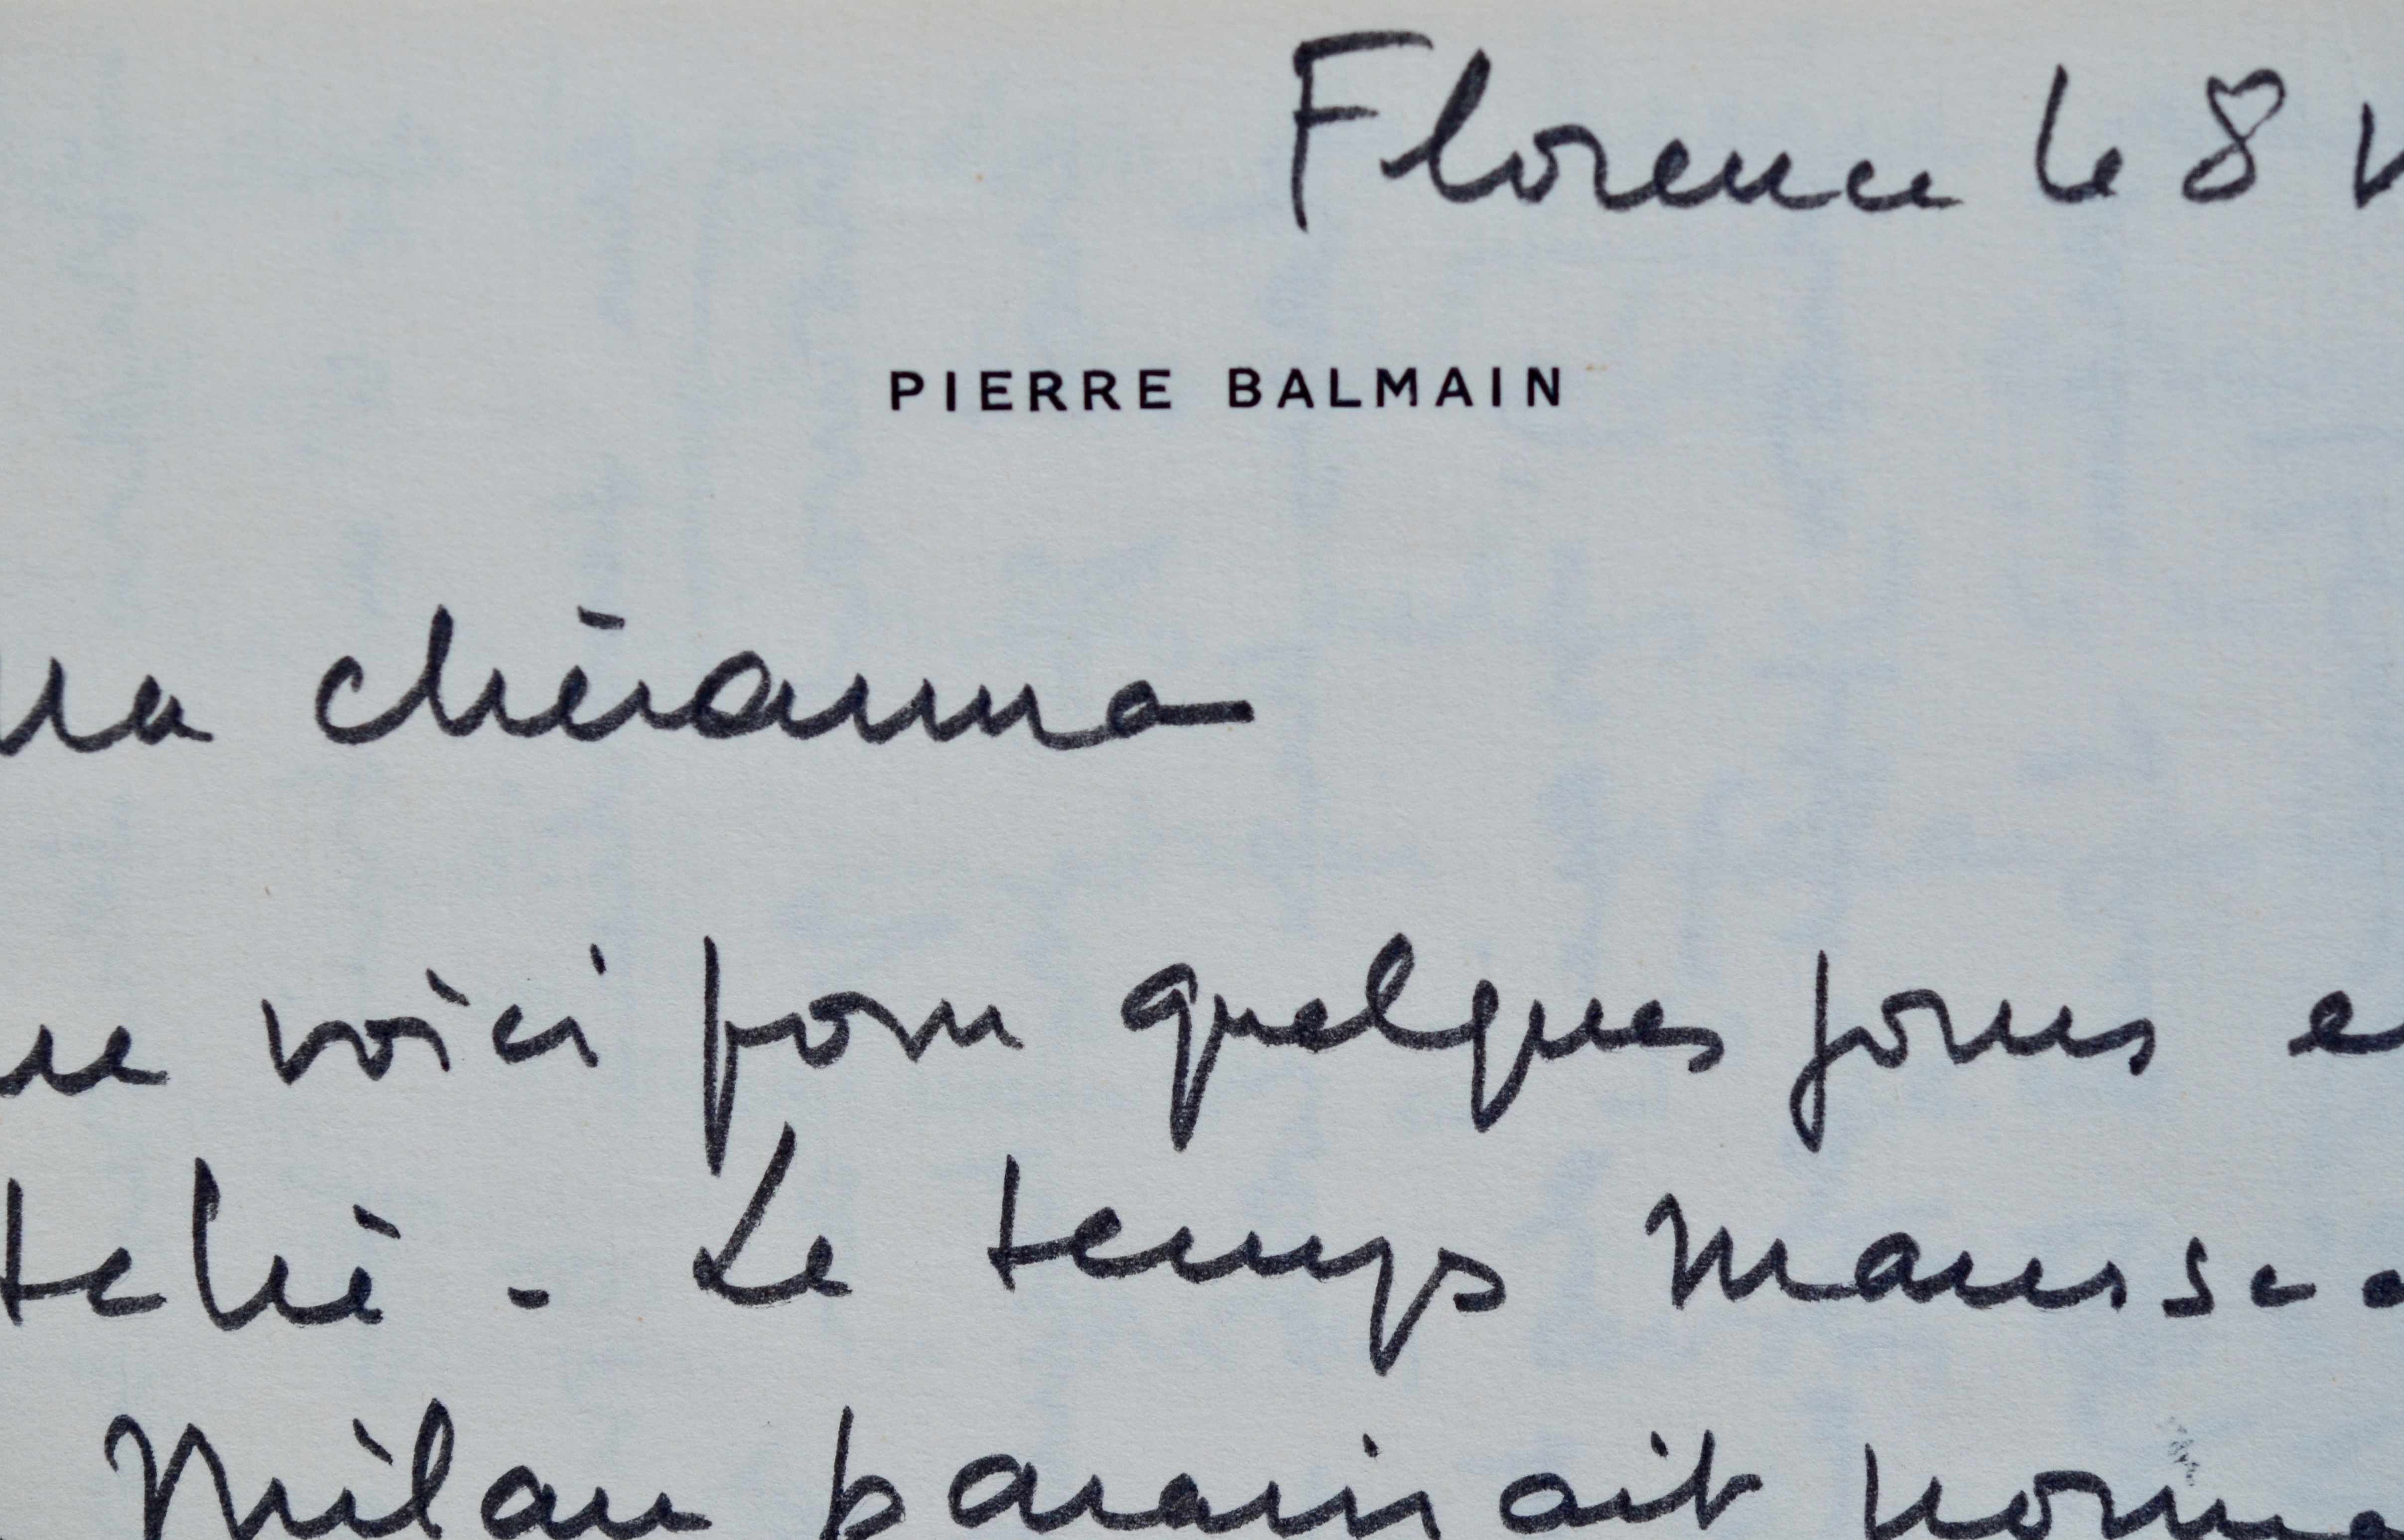 Florence le 8
PIERRE BALMAIN
Ma chèianna
me voici pour quelques jours e
Le temps maussa
Milan paraissait norma